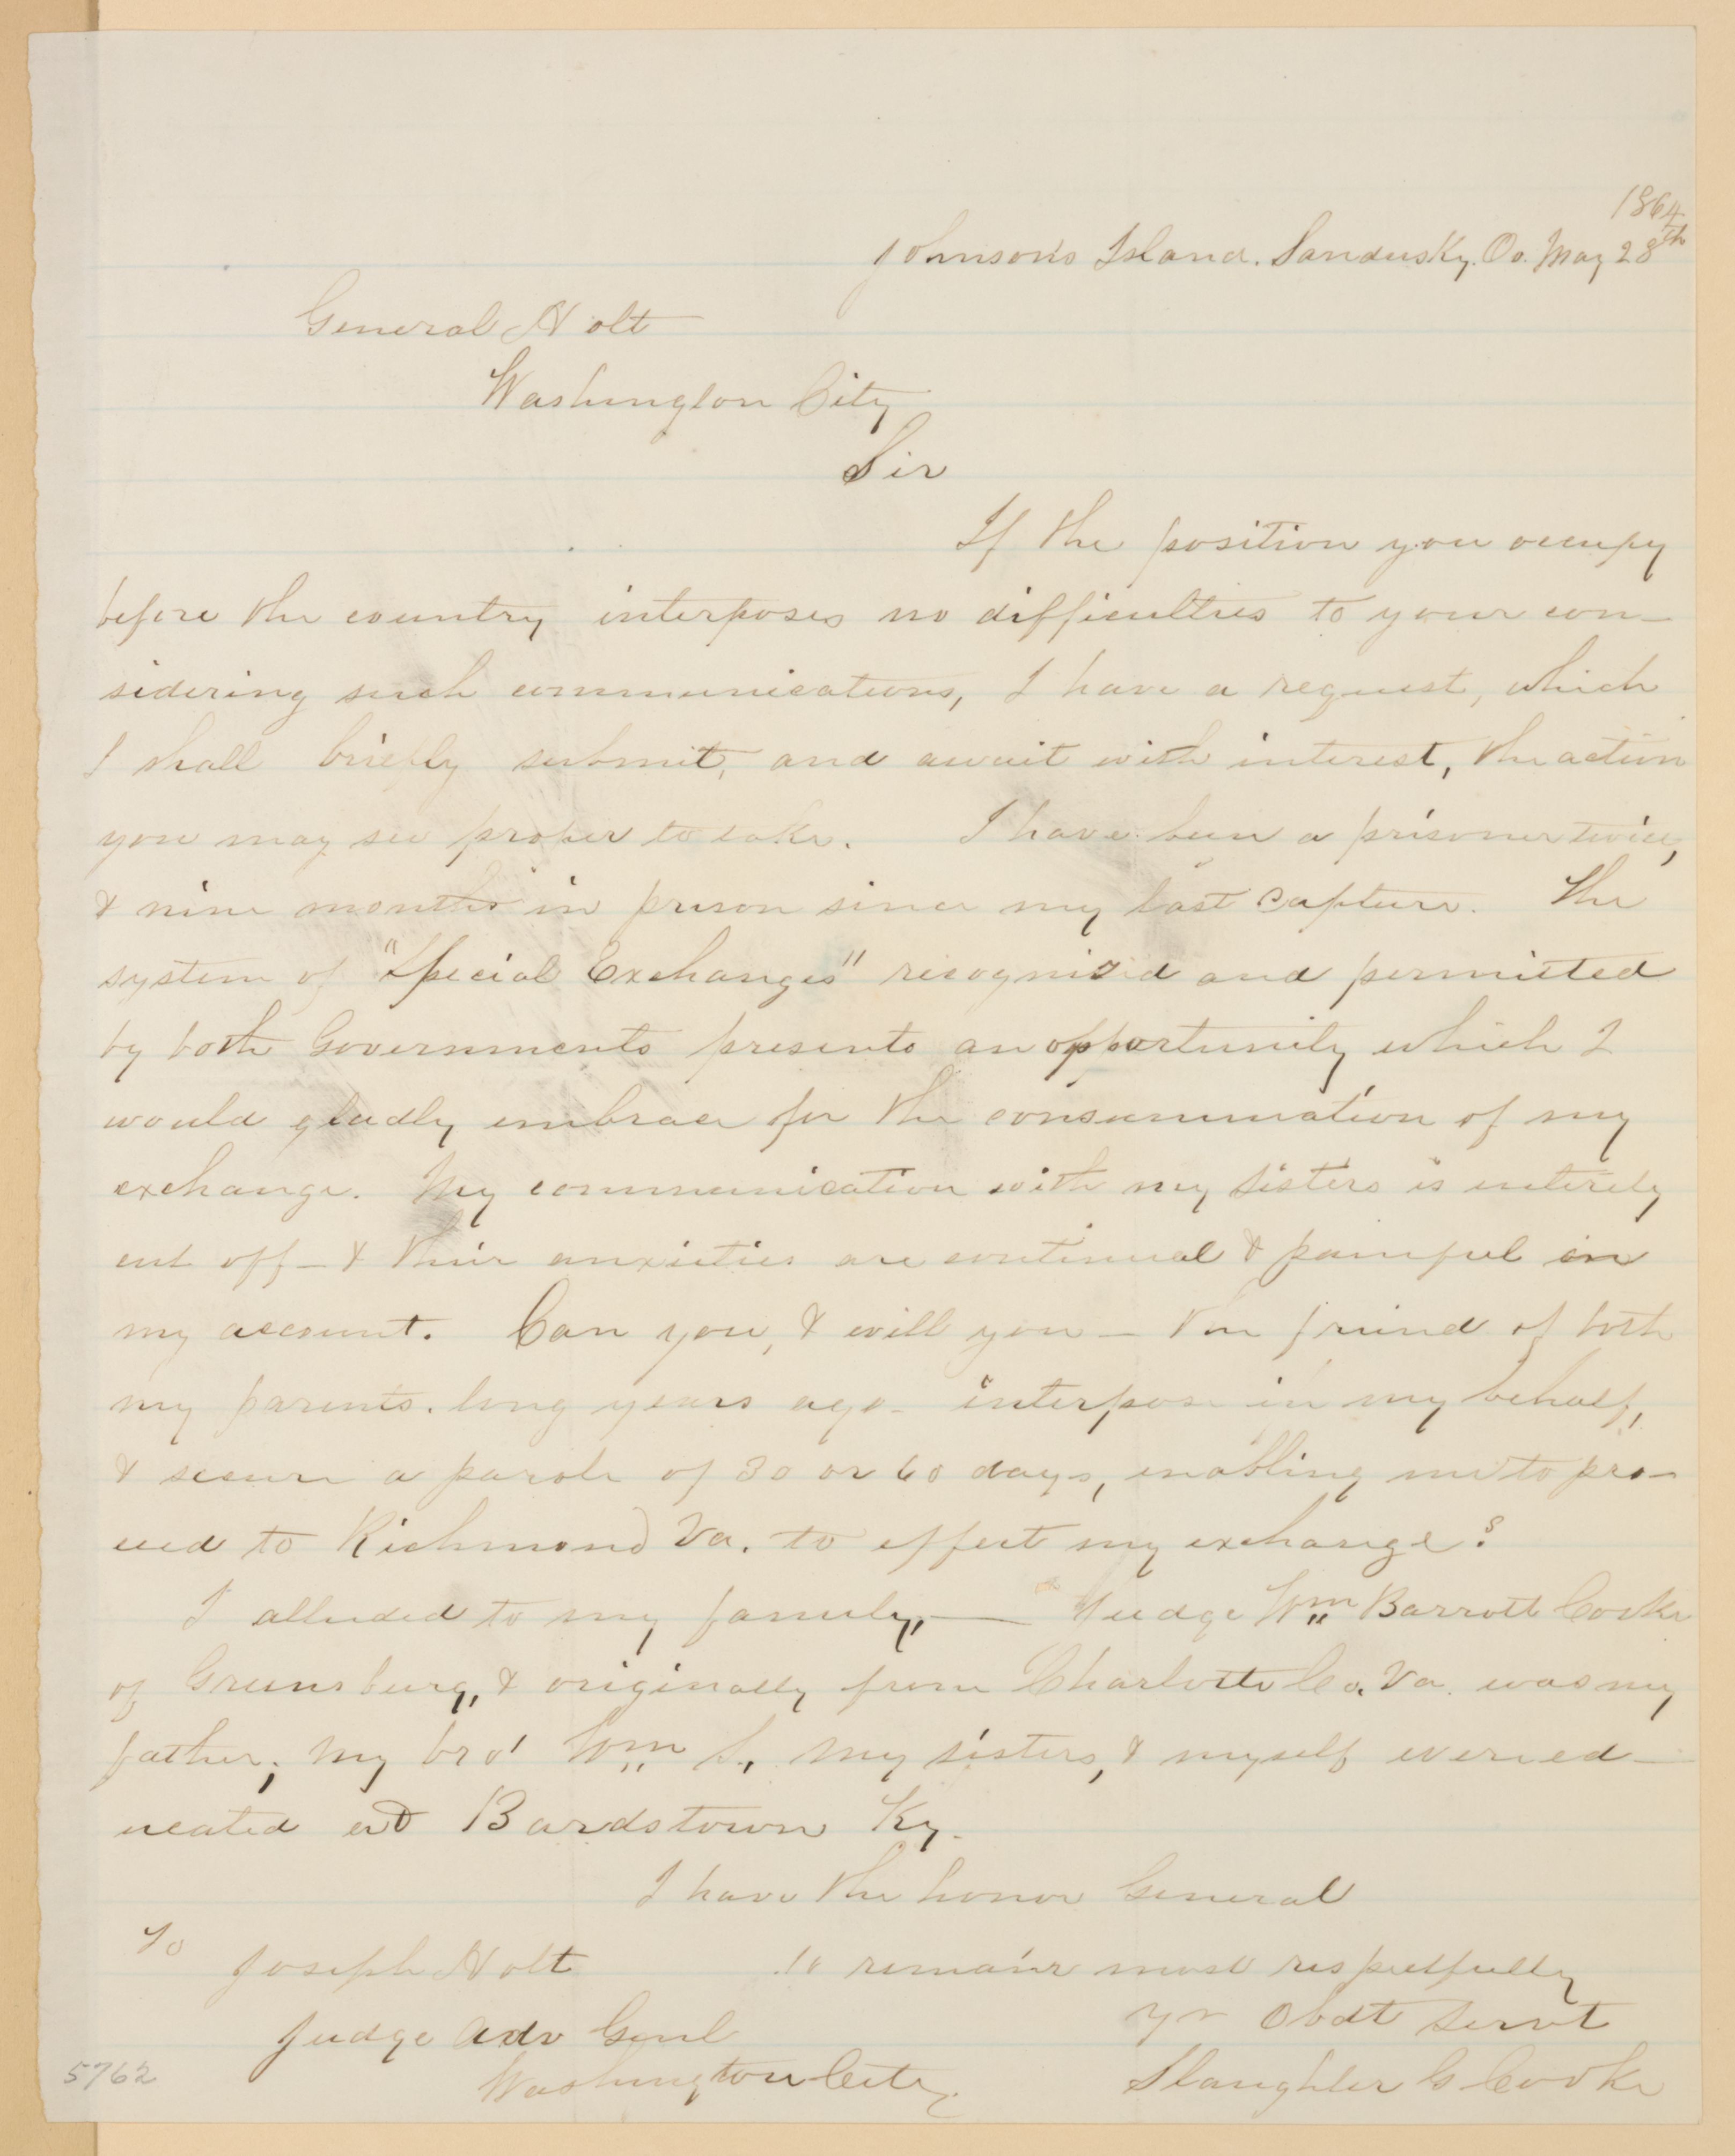 1864
Johnsons Island. Sandusky. Oo. May 28th
General Holt
Washington City
Sir
If the position you occupy
before the country interposes no difficulties to your con-
sidering such communications, I have a request, which
I shall briefly submit, and await with interest, the action
you may see proper to take. I have been a prisoner twice,
& nine months in prison since my last capture. The
system of "Special Exchanges" recognized and permitted
by both Governments presents an opportunity which I
would gladly embrace for the consummation of my
exchange. My communication with my sisters is entirely
cut off - & their anxieties are continual & painful on
my account. Can you, & will you - the friend of both
my parents. long years ago - interpose in my behalf,
& secure a parole of 30 or 60 days, enabling me to pro-
ceed to Richmond Va. to effect my exchange?
I alluded to my family, — Judge Wm Barrott Cooke
of Greensburg, & originally from Charlotte Co. Va. was my
father; My bro' Wm S., My sisters, & myself were ed-
ucated at Bardstown Ky.
I have the honor General
To
Joseph Holt to remain most respectfully
Judge Adv Genl yr Obdt Servt
Washington City. Slaughter G Cooke
5762